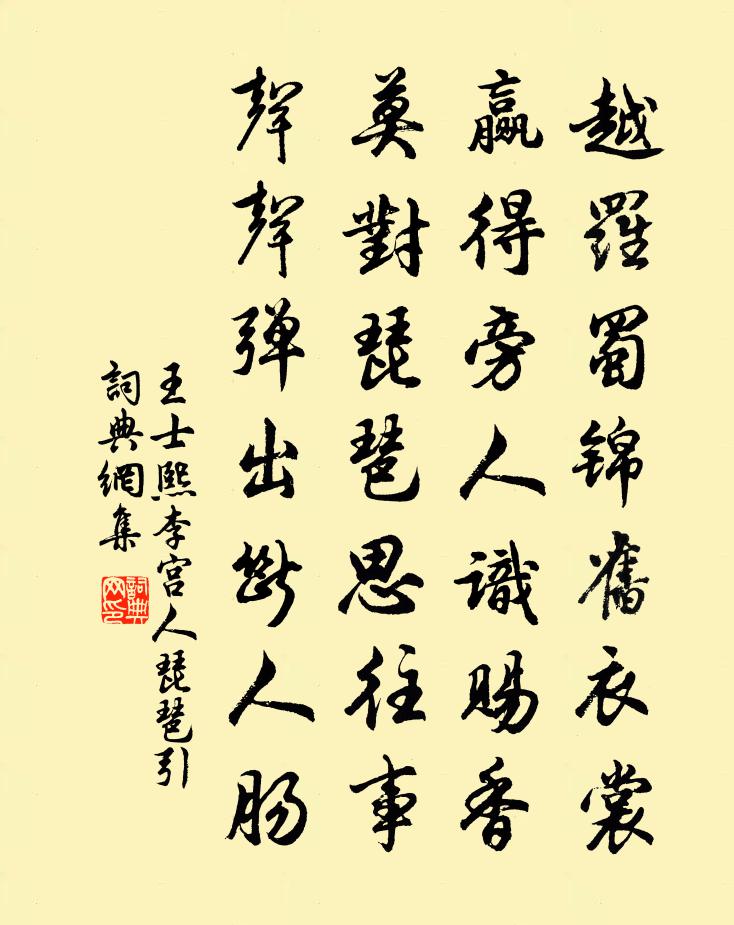 越羅蜀錦舊衣裳
贏得旁人識賜香
莫對琵琶思往事
聲聲彈出斷人腸
王士熙李宮人琵琶引
詞典網集
詞典網印